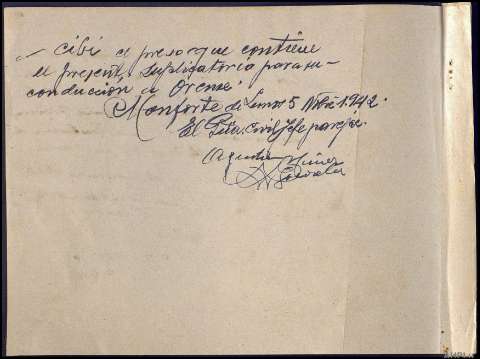 cibi el preso que contiene
el presente suplicatorio para su
conducion a Orense.
Monforte de Lemos 5 Nbre 1.942.
El Gua. Civil Jefe pareja.
Agustin